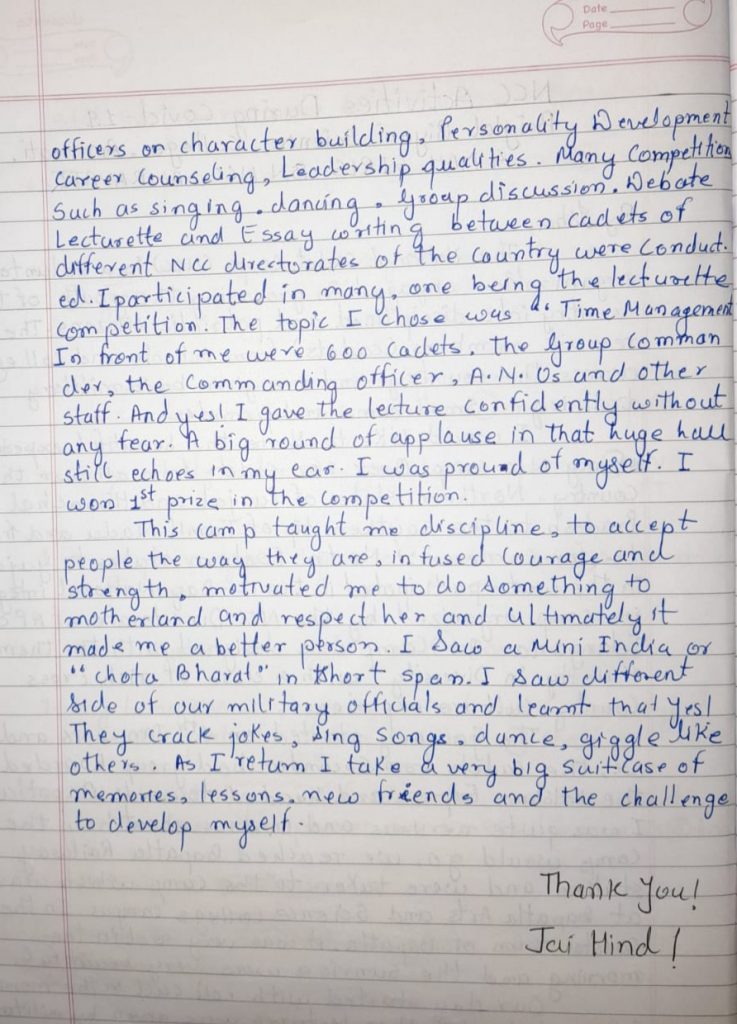 Date
Page
officers on character building, Personality Development
Career Counseling, Leadership qualities. Many Competition
Such as singing, dancing, Group discussion, Debate
Lecturette and Essay writing between cadets of
different NCC directorates of the Country were Conduct-
ed. I participated in many, one being the lecturette
competition. The topic I chose was "Time Management
In front of me were 600 Cadets, the Group Comman
der, the Commanding officer, A.N.Os and other
staff. And yes! I gave the lecture confidently without
any fear. A big round of applause in that huge hall
still echoes in my ear. I was proud of myself. I
won 1st prize in the competition.
This camp taught me discipline, to accept
people the way they are, infused Courage and
strength, motivated me to do something to
motherland and respect her and Ultimately it
made me a better person. I Saw a Mini India or
"chota Bharat" in short span. I Saw different
side of our military officials and learnt that Yes!
They crack jokes, Sing Songs, dance, giggle like
others. As I return I take a very big Suitcase of
memories, lessons, new friends and the challenge
to develop myself.
Thank You!
Jai Hind!